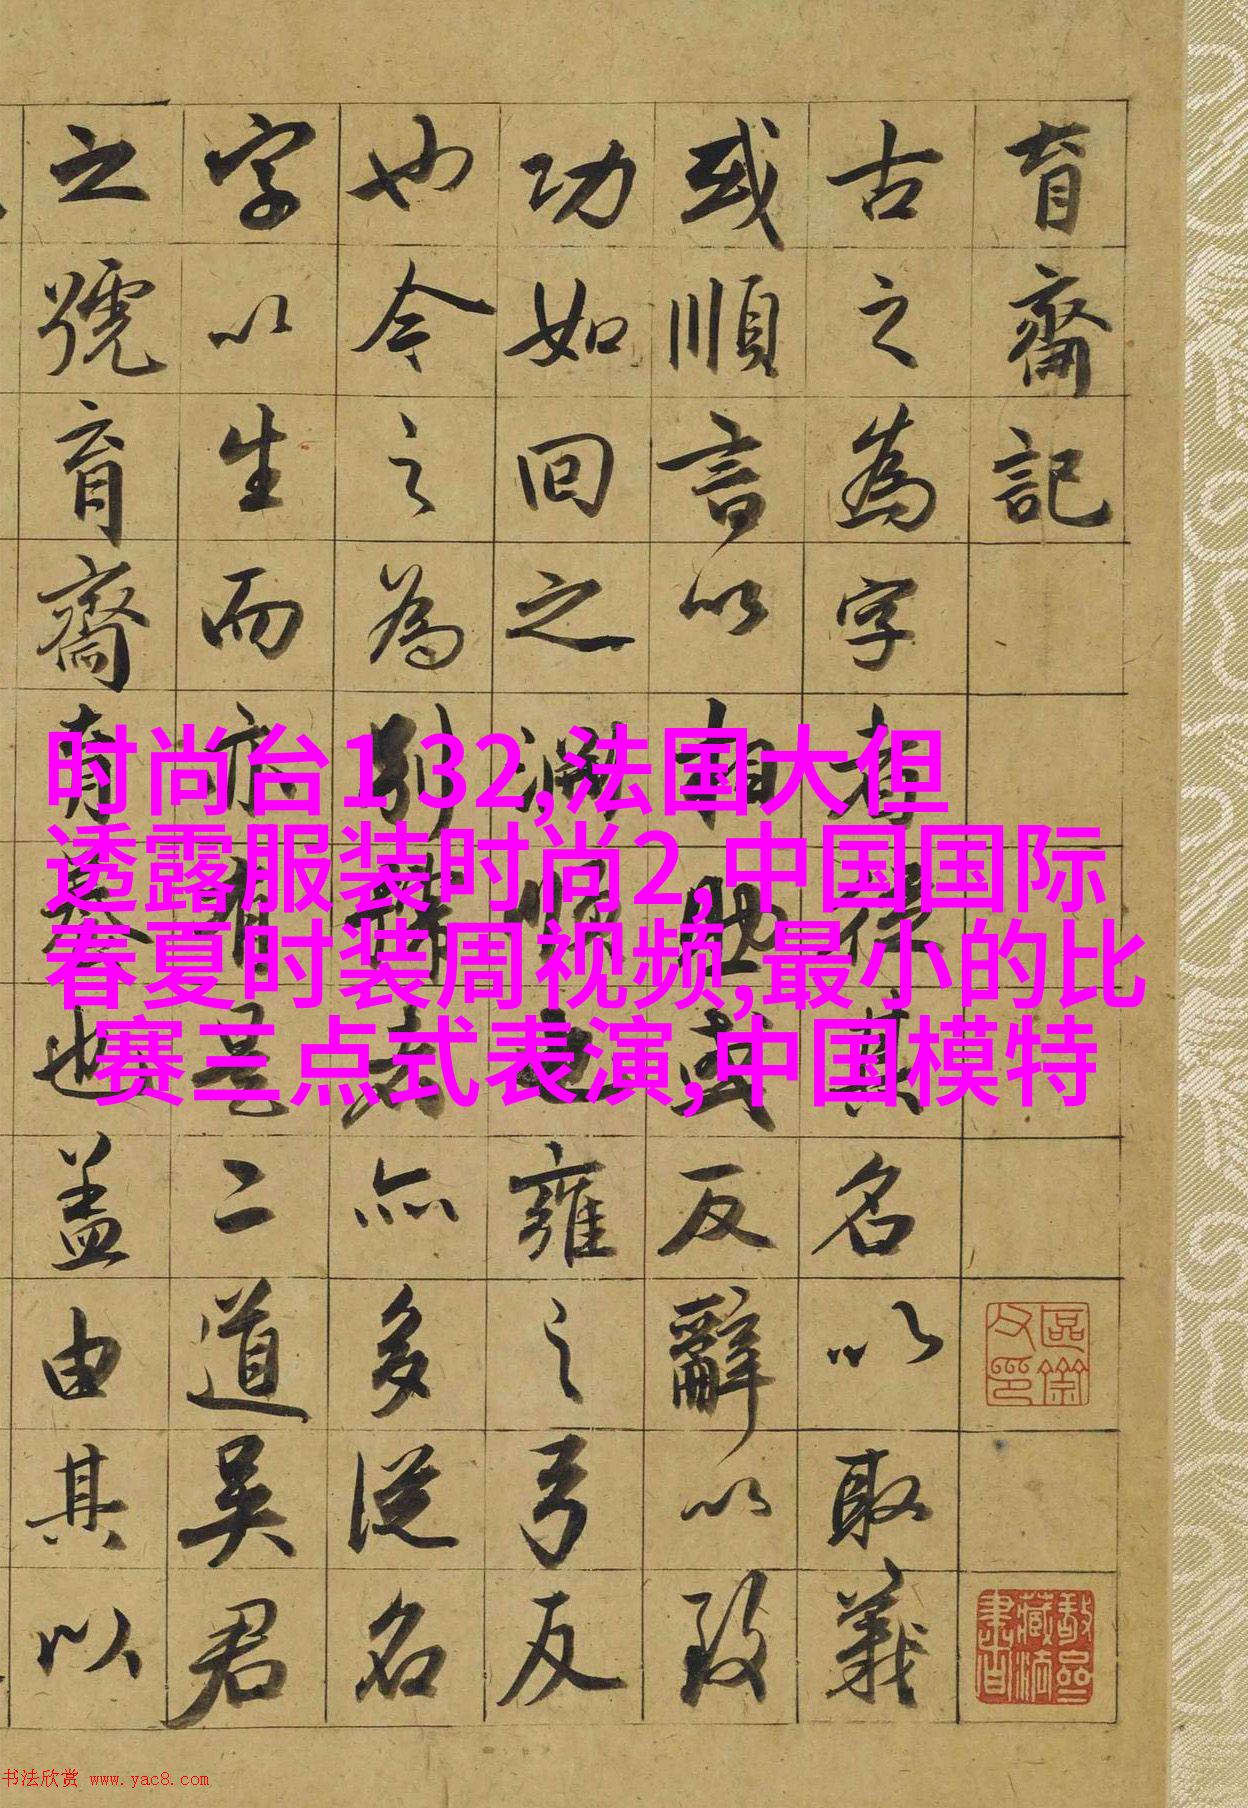 育齋記
古之為字者其名以取義
或順言以相助或反辭以致
功如回之淵順也雍之弓反
也今之為別稱者亦多從名
字以生而亦有是二道吳君
之號育齋育養也蓋由其以
时尚台1 32,法国大但
透露服装时尚2,中国国际
春夏时装周视频,最小的比
赛三点式表演,中国模特
书法欣赏 www.yac8.com